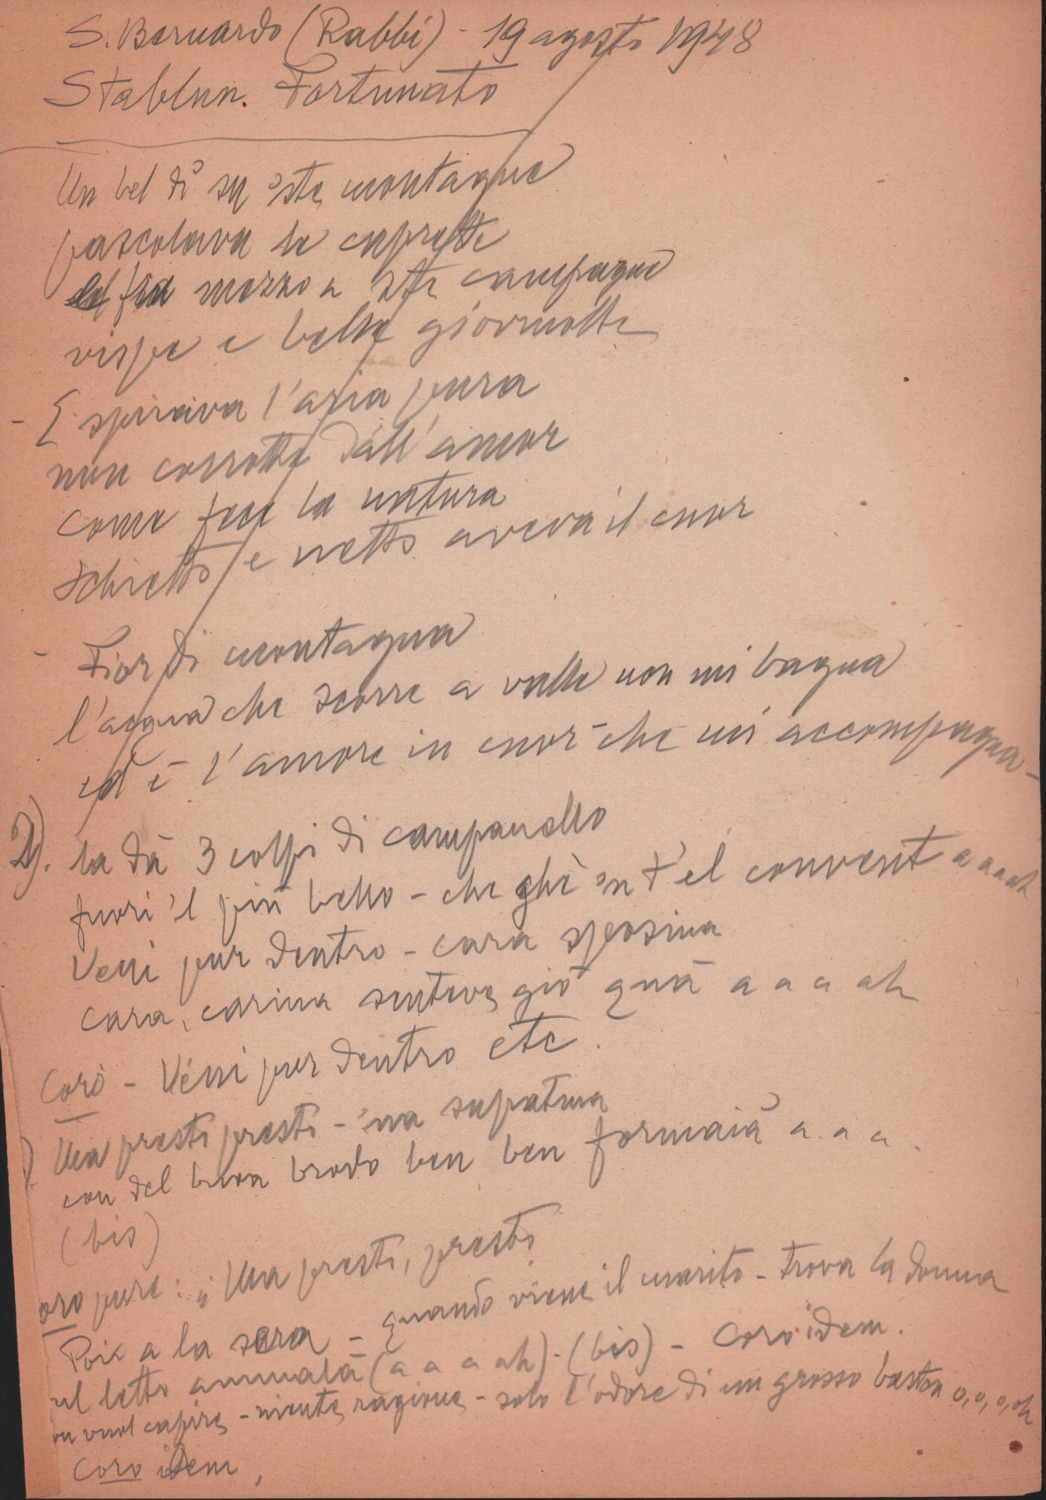 S. Bernardo (Rabbi) - 19 agosto 1948
Stablum. Fortunato
Un bel dì su 'ste montagne
pascolava le caprette
fra mezzo a ste campagne
vispe e belle giovinotte
- E spirava l'aria pura
non corrotta dall'amor
come fece la natura
schietto e netto aveva il cuor
- Fior di montagna
l'acqua che scorre a valle non mi bagna
ed è l'amore in cuor che mi accompagna -
2). la dà 3 colpi di campanello
fuori 'l più bello - che ghè 'n t'el convent a a a ah
Veni pur dentro - cara sposina
cara, carina senteve giò quà a a a ah
Coro - Véni pur dentro etc.
). Una presti presti - 'na supatina
con del buon brodo ben ben formaià a. a a.
(bis)
oro pure: " Una presti, presti
Poi a la sera - quando viene il marito - trova la donna
ul letto amalà (a a a ah) - (bis) - Coro idem.
on vuol capire - niente ragione - solo l'odore di un grosso baston o, o, o, oh
Coro idem,